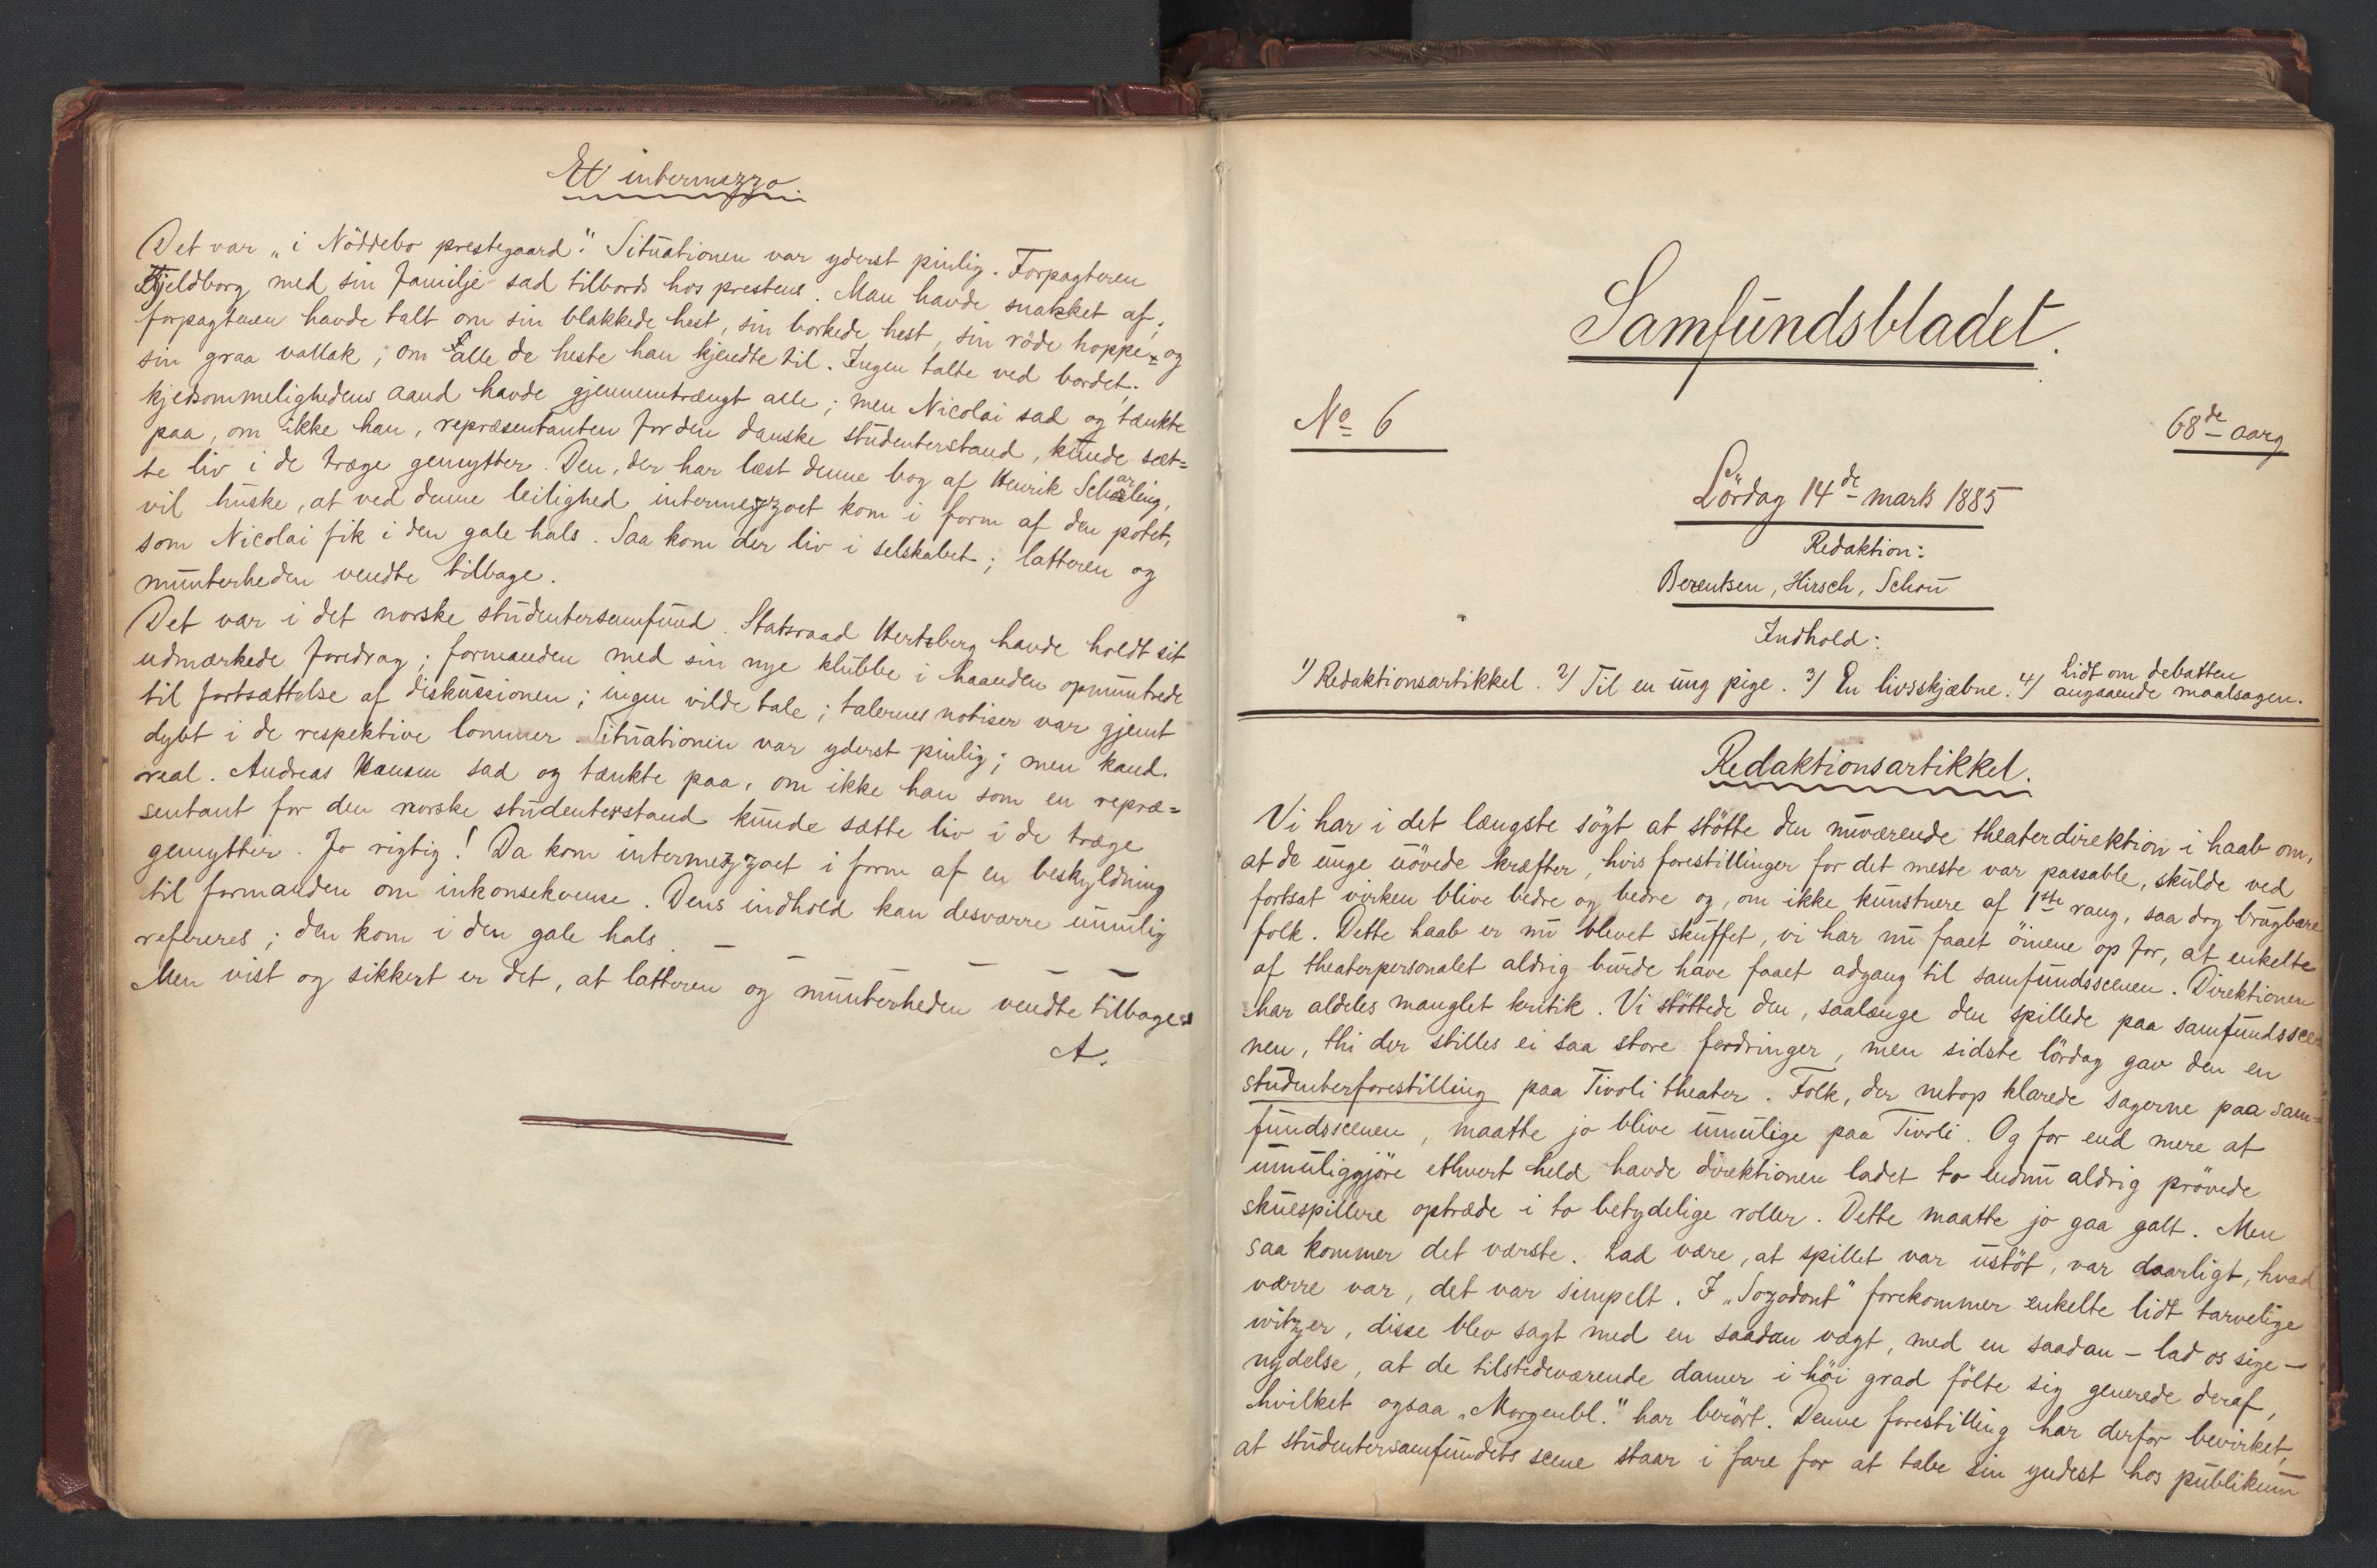 Et intermezzo
Det var „i Nöddebo prestegaard“. Situationen var yderst pinlig. Forpagteren
Kjeldborg med sin familje sad tilbords hos prestens. Man havde snakket af,
forpagteren havde talt om sin blakkede hest, sin borkede hest, sin röde hoppe og
sin graa vallak, om alle de heste han kjendte til. Ingen talte ved bordet;
kjedsommelighedens aand havde gjennemtrængt alle; men Nicolai sad og tænkte
paa, om ikke han, repræsentanten for den danske studenterstand, kunde sæt=
te liv i de træge gemytter. Den, der har læst denne bog af Henrik Scharling,
vil huske, at ved denne leilighed intermezzoet kom i form af den potet,
som Nicolai fik i den gale hals. Saa kom der liv i selskabet; latteren og
munterheden vendte tilbage.
Det var i det norske studentersamfund. Statsraad Hertzberg havde holdt sit
udmærkede foredrag; formanden med sin nye klubbe i haanden opmuntrede
til fortsættelse af diskussionen; ingen vilde tale; talernes notiser var gjemt
dybt i de respektive lommer. Situationen var yderst pinlig; men kand.
real. Andreas Hansen sad og tænkte paa, om ikke han som en repræ=
sentant for den norske studenterstand kunde sætte liv i de træge
gemytter. Jo rigtig! Da kom intermezzoet i form af en beskyldning
til formanden om inkonsekvense. Dens indhold kan desværre umulig
refereres; den kom i den gale hals. — — — —
Men vist og sikkert er det, at latteren og munterheden vendte tilbage.
A.
Samfundsbladet.
No 6
68de aarg
Lördag 14de marts 1885
Redaktion:
Berentsen, Hirsch, Schou
Indhold:
1) Redaktionsartikkel. 2) Til en ung pige. 3) En livsskjæbne. 4) Lidt om debatten
angaaende maalsagen.
Redaktionsartikkel.
Vi har i det længste sögt at stötte den nuværende theaterdirektion i haab om,
at de unge uövede kræfter, hvis forestillinger for det meste var passable, skulde ved
fortsat virken blive bedre og bedre og, om ikke kunstnere af 1ste rang, saa dog brugbare
folk. Dette haab er nu blevet skuffet, vi har nu faaet öinene op for, at enkelte
af theaterpersonalet aldrig burde have faaet adgang til samfundsscenen. Direktionen
har aldeles manglet kritik. Vi stöttede den, saalænge den spillede paa samfundssce=
nen, thi der stilles ei saa store fordringer, men sidste lördag gav den en
studenterforestilling paa Tivoli theater. Folk, der netop klarede sagerne paa sam=
fundsscenen, maatte jo blive umulige paa Tivoli. Og for end mere at
umuliggjöre ethvert held havde direktionen ladet to endnu aldrig prövede
skuespillere optræde i to betydelige roller. Dette maatte jo gaa galt. Men
saa kommer det værste. Lad være, at spillet var ustöt, var daarligt, hvad
værre var, det var simpelt. I „Sozodont“ forekommer enkelte lidt tarvelige
witzer, disse blev sagt med en saadan vægt, med en saadan – lad os sige –
nydelse, at de tilstedeværende damer i höi grad fölte sig generede deraf,
hvilket ogsaa „Morgenbl.“ har berört. Denne forestilling har derfor bevirket,
at studentersamfundets scene staar i fare for at tabe sin yndest hos publikum